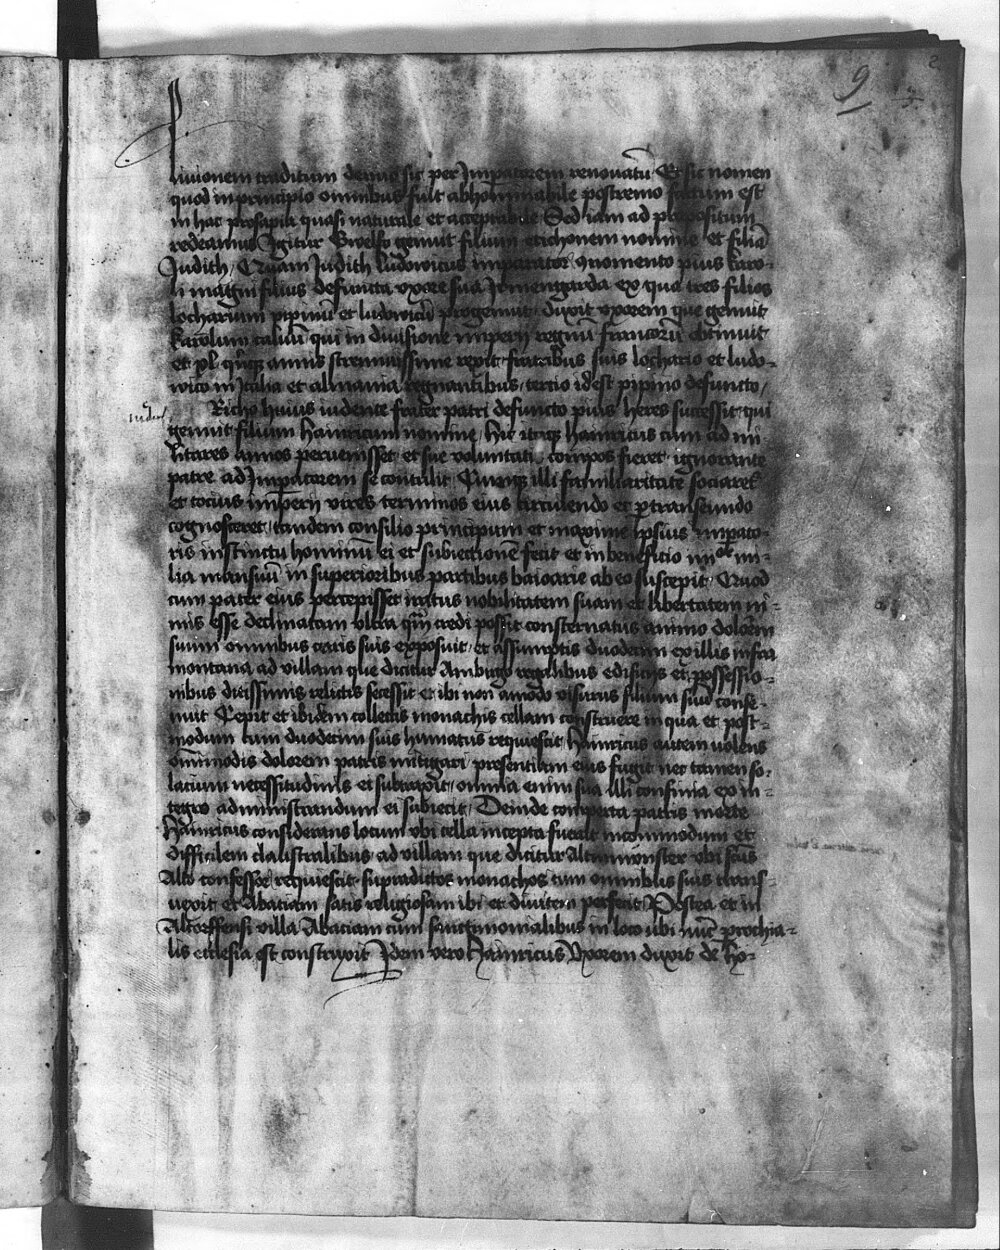 9
liuionem traditum denuo sit per Imperatorem renouatū Et sic nomen
quod in principio omnibus fuit abhominabile postremo factum est
in hac prosapia quasi naturale et acceptabile Sed iam ad propositum
redeamus Igitur Gwelfo genuit filium etichonem nomine et filiā
Judith, Quam Judith ludowicus imperator cognomento pius karo-
li magni filius defuncta vxore sua Irmengarda ex qua tres filios
lotharium pipinū et ludowicū progenuit, duxit vxorem que genuit
karolum caluū qui in diuisione imperij regnū francorū obtinuit
et pl' annis strennuissime rexit fratribus suis lothario et ludo-
wico in Italia et almania regnantibus, tertio id est pipino defuncto,
Richo huius iudente frater patri defuncto pius heres successit qui
genuit filium Hainricum nomine, hic itaq; hainricus cum ad mi
litares annos peruenisset et sue voluntati compos fieret ignorante
patre ad Imperatorem se contulit Cumq; illi familiaritate sociaret'
et tocius imperij vires terminos eius circuiendo et ptranseundo
cognosceret, tandem consilio principum et maxime ipsius impato-
ris instinctu hominiū ei et subiectionē fecit et in beneficio iiijor mi-
lia mansuū in superioribus partibus baioarie ab eo suscepit Quod
cum pater eius percepisset iratus nobilitatem suam et libertatem ni-
mis esse declinatam vltra qm credi possit consternatus animo dolorem
suum omnibus caris suis exposuit, et assumptis duodecim ex illis infra
montana ad villam que dicitur Ambirgo regalibus edificijs et possessio-
nibus ditissimis relictis secessit et ibi non amodo visurus filium suū conse-
nuit Cepit et ibidem collectis monachis cellam construere in qua et post-
modum cum duodecim suis humatus requiescit Hainricus autem volens
omnimodis dolorem patris mitigari presentiam eius fugit nec tamen so-
lacium necessitudinis ei subtraxit, omnia enim sua illi confinia ex in-
tegro administrandum ei subiecit, Deinde comperta patris morte
Hainricus considerans locum vbi cella incepta fuerat incommodum et
difficilem claustralibus, ad villam que dicitur Altmunster vbi scūs
Alto confessor requiescit supradictos monachos cum omnibus suis trans-
uexit et Abatiam satis religiosam ibi et diuitem perfecit Postea et in
Altorffensi villa Abatiam cum sanctimonialibus in loco ubi nūc prochia-
lis ecclesia est construxit Idem vero Hainricus Vxorem duxit de hy-